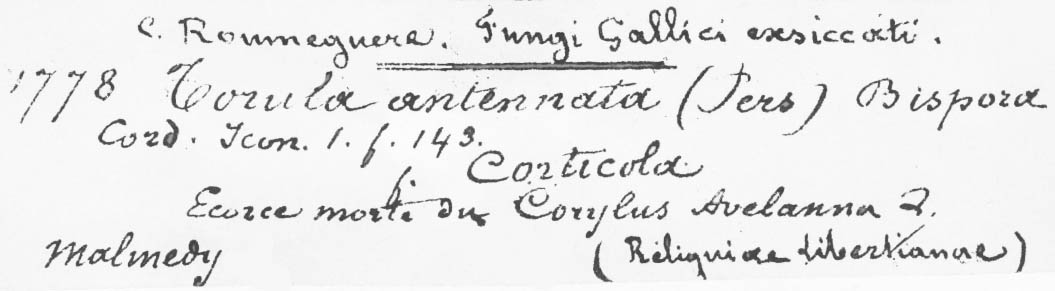 C. Roumeguere. Fungi Gallici exsiccati.
1778 Torula antennata (Pers) Bispora
Cord. Icon. 1. f. 143.
f. Corticola
Ecorce morte du Corylus Avelanna L.
Malmedy (Réliquiae Libertianae)